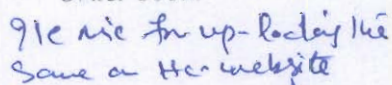 NIC for up-loading the
same on the website